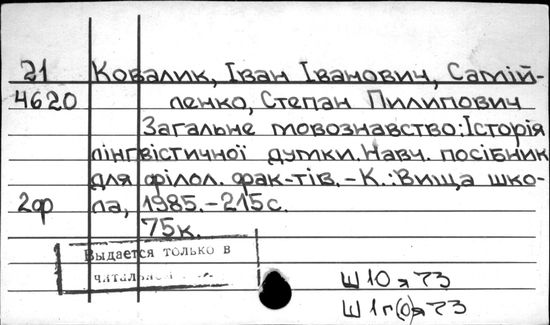 21 Ковалик, Іван Іванович, Самій-
4620 ленко, Степан Пилипович
Загальне мовознавство: Історія
лінгвістичної думки. Навч. посібник
для філол. фак-тів. – К.: Вища шко-
2ф ла, 1985. – 215 с.
75к.
Выдается только в
читальном
Ш10я73
Ш1г(0)я73